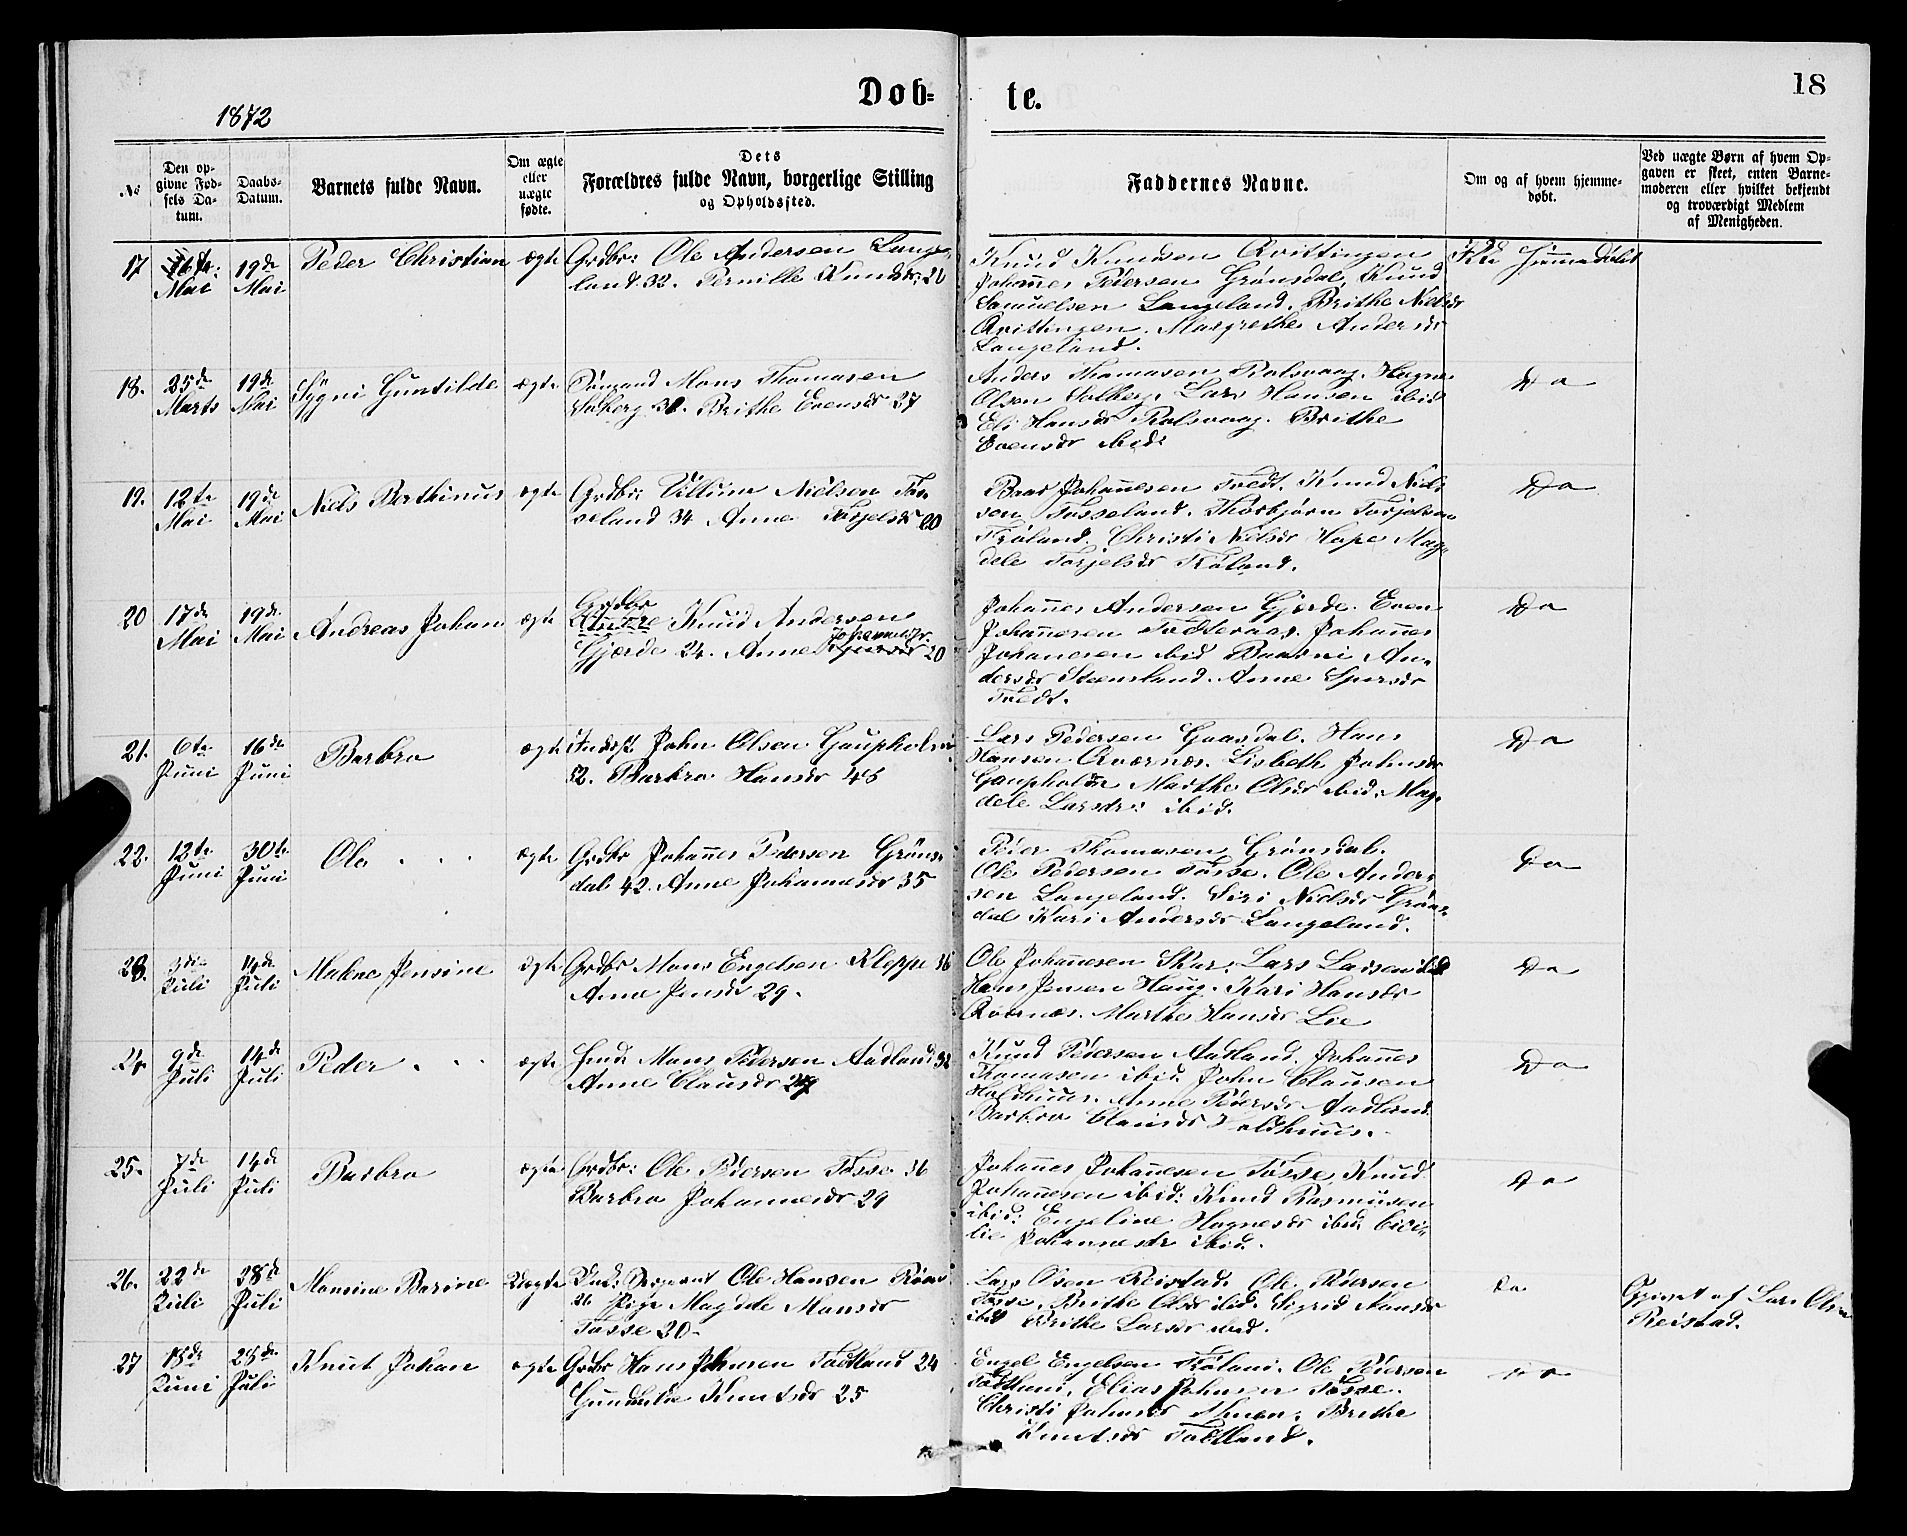 Døb=
te.
18
1872
№
Den op-
givne Fød-
sels Da-
tum.
Daabs-
Datum.
Barnets fulde Navn.
Om ægte
eller
uægte
fødte.
Dets
Forældres fulde Navn, borgerlige Stilling
og Opholdssted.
Faddernes Navne.
Om og af hvem hjemme-
døbt.
Ved uægte Børn af hvem Op-
gaven er skeet, enten Barne-
moderen eller hvilket bekjendt
og troværdigt Medlem
af Menigheden.
17
16de
Mai
19de
Mai
Peder Christian
ægte
Grdbr: Ole Andersen Lange-
land 32. Pernille Knudsdr: 26
Knud Knudsen Qvittingen
Johannes Pedersen Grønsdal, Knud
Samuelsen Langeland. Brithe Nielsdr
Qvittingen. Margrethe Andersdr
Langeland.
Ikke hjemmedøbt
18.
25de
Marts
19de
Mai
Sygni Guntilde
ægte
Mons Thomasen
Solberg 30. Brithe Evensdr 27
Anders Thomasen Rolsvaag. Hagne
Olsen Solberg. Lars Hansen ibid
Eli Hansdr Rolsvaag. Brithe
Evensdr ibid:
Do
19.
12te
Mai
19de
Mai
Niels Berthinus
ægte
Grdbr: Villum Nielsen Tøs-
seland 34 Anne Torjelsdr 20
Baar Johannesen Tvedt. Knud Niel-
sen Tøsseland. Thorbjørn Torjelsen
Frøland. Christi Nielsdr Hope Mag-
dele Torjelsdr Frøland.
Do
20
17de
Mai
19de
Mai
Andreas Johan
ægte
Grdbr
Knud Andersen
Gjerde 24. Anne Johannesdr. 20
Johannes Andersen Gjerde. Even
Johannesen Tødtevaag. Johannes
Johannesen ibid An-
dersdr Steensland. Anne Sjursdr
Tvedt.
Do
21.
6te
Juni
16de
Juni
Barbro
ægte
Inderst John Olsen Gaupholm
52. Barbro Hansdr 45
Lars Pedersen Gaasdal. Hans
Hansen Qvernæs. Lisbeth Johnsdr
Gaupholm Marthe Olsdr ibid. Mag-
dele Larsdr: ibid.
Do
22.
12te
Juni
30te
Juni
Ole
ægte
Grdbr Johannes Pedersen Grøns-
dal 42. Anne Johannesdr 35
Peder Thomasen Grønsdal.
Ole Pedersen Tøsse. Ole Ander-
sen Langeland. Siri Nielsdr Grøns-
dal Kari Andersdr Langeland.
Do
23.
3die
Juli
14de
Juli
Malene Jensine
ægte
Grdbr Mons Engelsen Kleppe 36
Anne Jensdr 29.
Ole Johannesen Skar. Lars Larsen ibid
Hans Jensen Haug. Kari Hansdr
Qvernæs. Marthe Hansdr Lie
Do
24
9de
Juli
14de
Juli
Peder
ægte
Mons Pedersen Aadland 32
Anne Clausdr 27
Knud Pedersen Aadland. Johannes
Thomasen ibid John Clausen
Holdhuus. Anne Pedersdr Aadland
Barbro Clausdr Holdhuus.
Do
25.
7de
Juli
14de
Juli
Barbro
ægte
Grdbr: Ole Pedersen Tøsse 36
Barbro Johannesdr 29
Johannes Johannesen Tøsse, Knud
Johannesen ibid: Knud Rasmusen
ibid: Engeline Hagnesdr ibid. Cici-
lie Johannesdr ibid.
Do
26.
22de
Juli
28de
Juli
Monsine Barine
Uægte
Ole Hansen
Pige Magdele Monsdr
Tøsse 20-
Lars Olsen Reistad. Ole Pedersen
Tøsse. Brithe Olsdr ibid. Sigrid Hansdr
ibid Brithe Larsdr ibid.
Do
Opgivet af Lars Olsen
Reistad.
27
18de
Juni
28de
Juli
Knut Johan
ægte
Grdbr Hans Johnsen Tødtland 24
Knutsdr 25
Engel Engelsen Frøland. Ole Pedersen
Tødtland, Elias Johnsen Tøsse.
Christi Johnsdr. Brithe
Knutsdr Tødtland.
Do